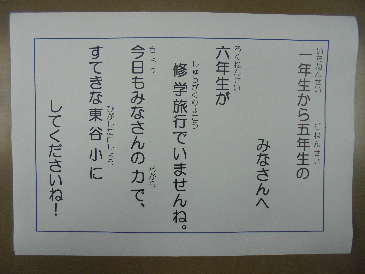 一年生から五年生の
みなさんへ
六年生が
修学旅行でいませんね。
今日もみなさんの力で、
すてきな東谷小に
してくださいね！